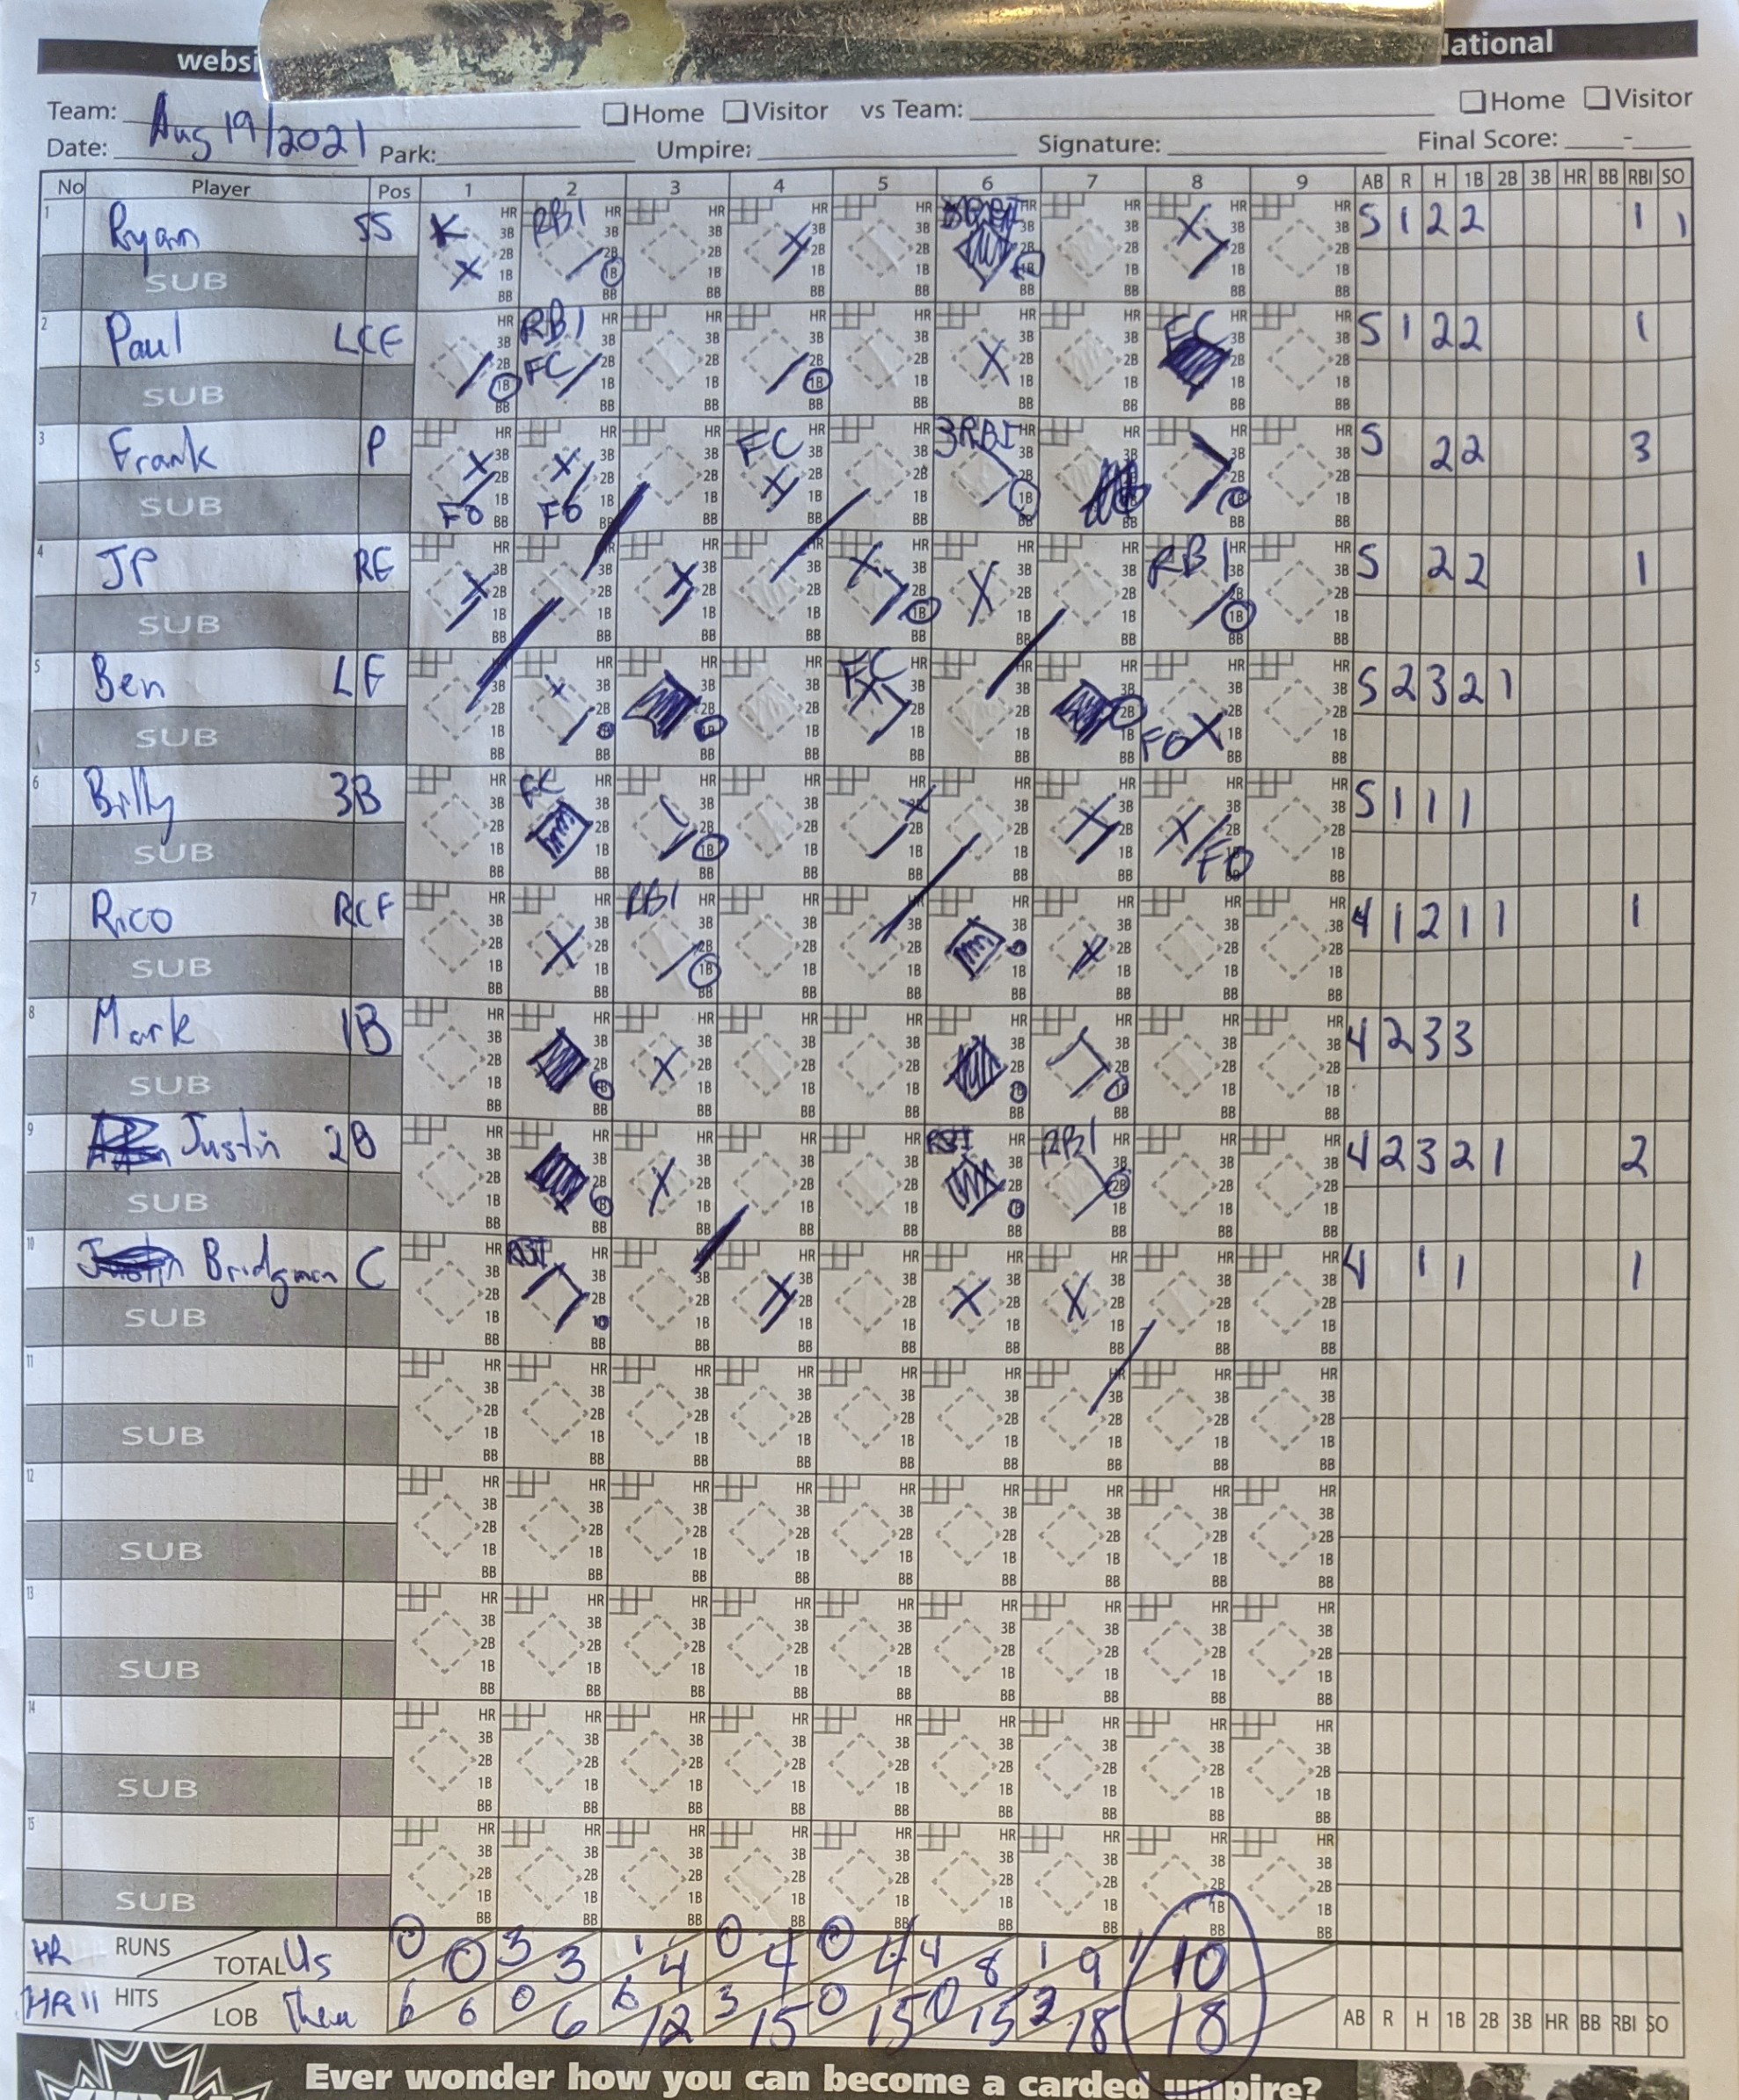 websi
lational
Team: □ Home □ Visitor vs Team: □ Home □ Visitor
Date: Aug 19/2021 Park: Umpire: Signature: Final Score: -
No Player Pos 1 2 3 4 5 6 7 8 9 AB R H 1B 2B 3B HR BB RBI SO
1 Ryan SS K RBI 5 1 2 2 1 1
SUB
2 Paul LCF RBI FC FC 5 1 2 2 1
SUB
3 Frank P FO FO FC 3RBI 5 2 2 3
SUB
4 JP RF RBI 5 2 2 1
SUB
5 Ben LF FC FO 5 2 3 2 1
SUB
6 Billy 3B FC FO 5 1 1 1
SUB
7 Rico RCF RBI 4 1 2 1 1 1
SUB
8 Mark 1B 4 2 3 3
SUB
9 Justin 2B RBI RBI 4 2 3 2 1 2
SUB
10 Bridgman C RBI 4 1 1 1
SUB
11
SUB
12
SUB
13
SUB
14
SUB
15
SUB
HR RUNS TOTAL Us 0 0 3 3 1 4 0 4 0 4 4 8 1 9 1 10
HR 11 HITS LOB Them 6 6 0 6 6 12 3 15 0 15 0 15 3 18 18 AB R H 1B 2B 3B HR BB RBI SO
Ever wonder how you can become a carded umpire?